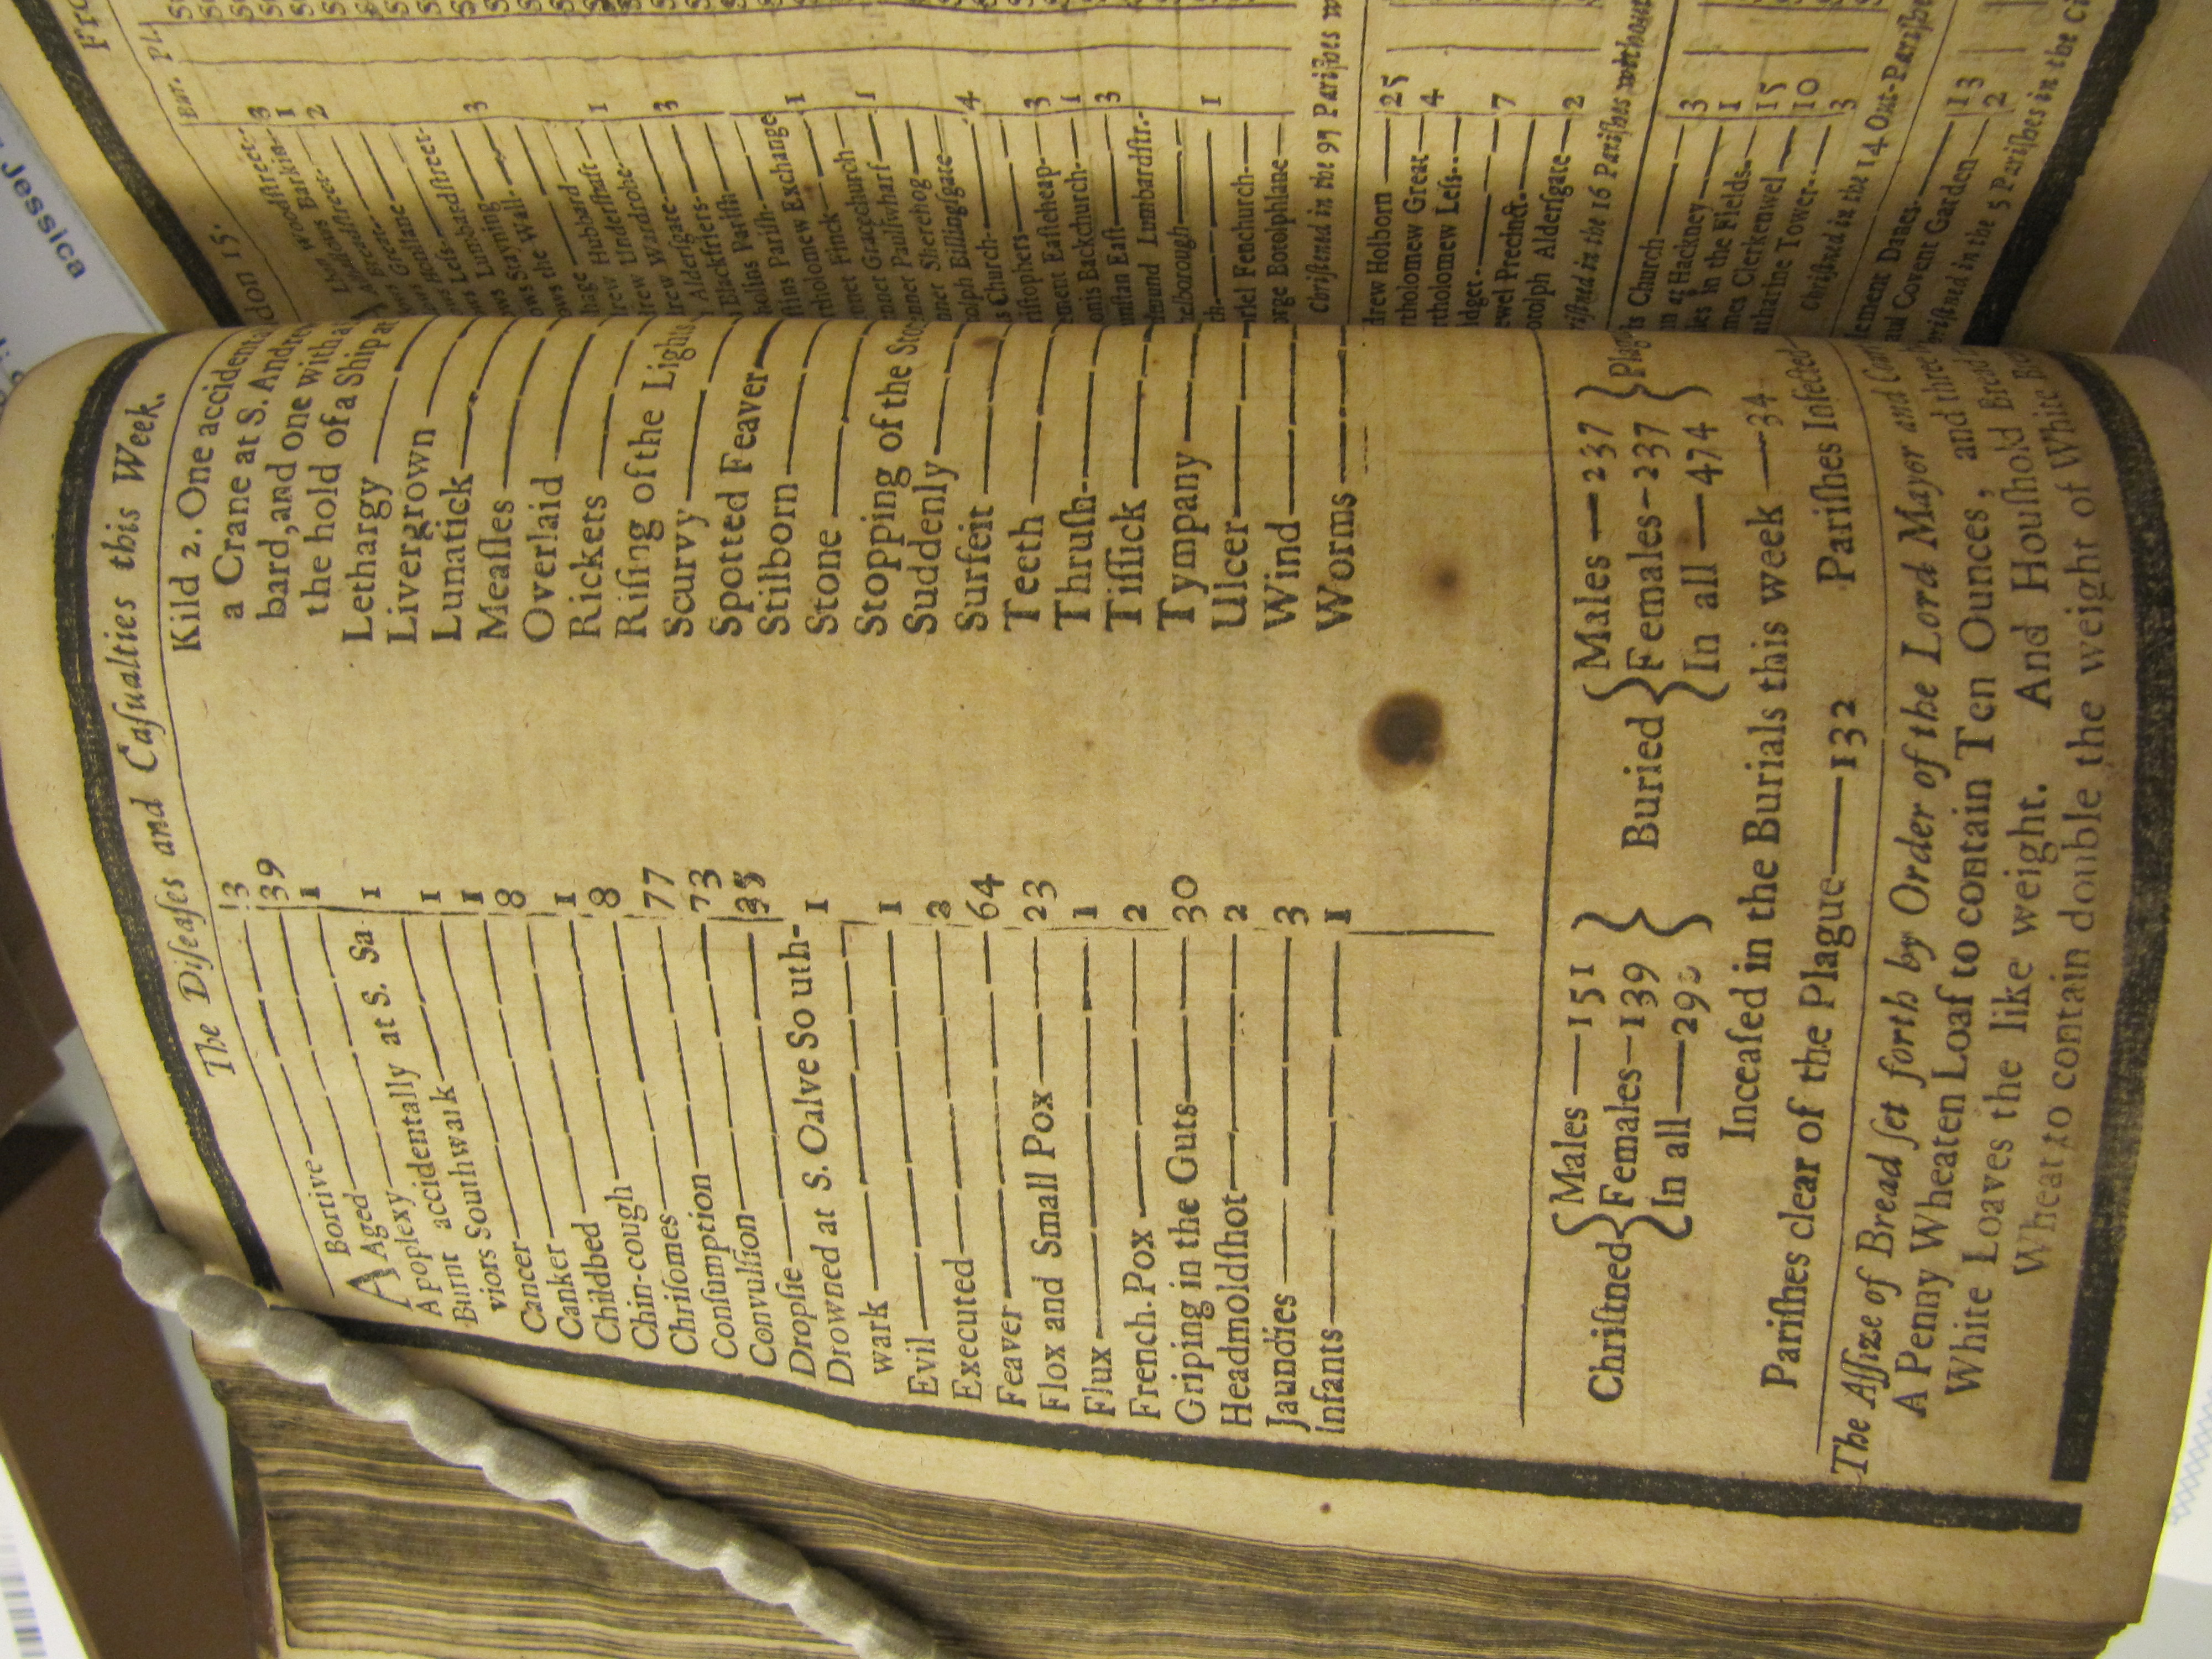 The Diſeaſes and Caſualties this Week.
A Bortive 3
Aged 39
Apoplexy 1
Burnt accidentally at S. Sa
viors Southwalk 1
Cancer 1
Canker 1
Childbed 8
Chin-cough 1
Chriſomes 8
Conſumption 77
Convulſion 73
Dropſie
Drowned at S. Oalve South-
wark 1
Evil 1
Executed
Feaver 64
Flox and Small Pox 23
Flux 1
French-Pox 2
Griping in the Guts 30
Headmoldſhot 2
Jaundies 3
Infants 1
Kild 2. One accidental
a Crane at S. Andrew
bard, and one with a
the hold of a Ship at
Lethargy
Livergrown
Lunatick
Meaſles
Overlaid
Rickets
Riſing of the Lights
Scurvy
Spotted Feaver
Stilborn
Stone
Stopping of the Sto
Suddenly
Surfeit
Teeth
Thruſh
Tiſſick
Tympany
Ulcer
Wind
Worms
Chriſtned { Males — 151 Females — 139 In all — 290 } Buried { Males — 237 Females — 237 In all — 474 } Plag
Inceaſed in the Burials this week — 34
Pariſhes clear of the Plague — 132 Pariſhes Infected
The Aſſize of Bread ſet forth by Order of the Lord Mayor and Court
A Penny Wheaten Loaf to contain Ten Ounces, and three
White Loaves the like weight. And Houſhold Bre
Wheat to contain double the weight of White Bre
Fro
don 15.
Bur. Pl.
Woodſtreet 3
Barkin 1
Breadſtreet 2
Great
Honilane
Leſs
Lumbardſtreet
Stayning 3
the Wall
Hubbard
drew Underſhaft 1
drew Wardrobe
Alderſgate 3
Blackfriers
holins Pariſh
ſtins Pariſh
rtholomew Exchange 1
Finck
nnet Gracechurch
nnet Paulſwharf 1
nner Sherehog
olph Billingſgate
s Church 4
riſtophers
ment Eaſtcheap 3
onis Backchurch 1
unſtan Eaſt 3
mund Lumbardſtr.
helborough
th 1
riel Fenchurch
orge Botolphlane
Chriſtened in the 97 Pariſhes w
drew Holborn 25
rtholomew Great 4
rtholomew Leſs
idget
ewel Precinct 7
otolph Alderſgate 2
riſtned in the 16 Pariſhes without
s Church
n at Hackney 3
les in the Fields 1
mes Clerkenwel 15
tharine Tower 10
3
Chriſtned in the 14 Out-Pariſhes
lement Danes
aul Covent Garden 13
2
riſtned in the 5 Pariſhes in the Ci
Jessica